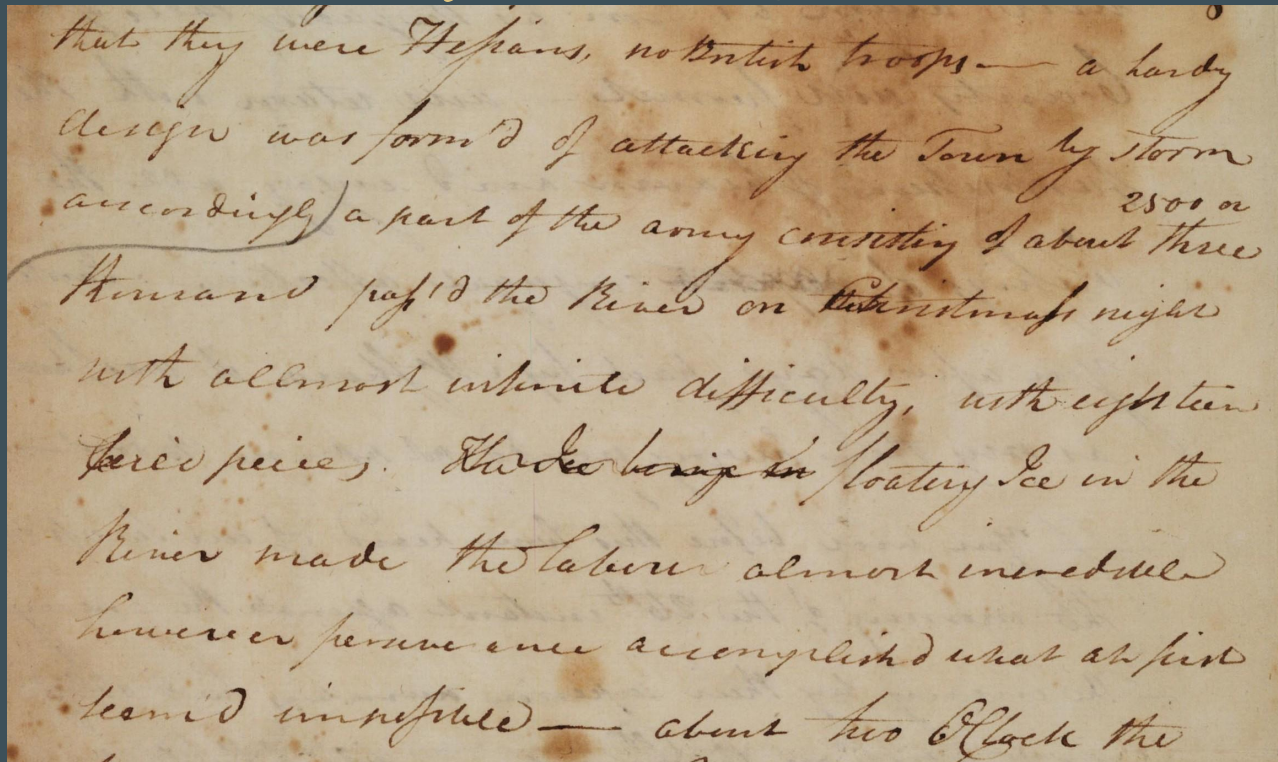 that they were Hessians, no British troops — a hardy
design was form'd of attacking the Town by storm
2500 or
accordingly) a part of the army consisting of about three
thousand pass'd the River on Christmass night
with allmost infinite difficulty, with eighteen
feild peices. The Ice being in floating Ice in the
River made the labour almost incredible
however perseverance accomplish'd what at first
seem'd impossible — about two OClock the